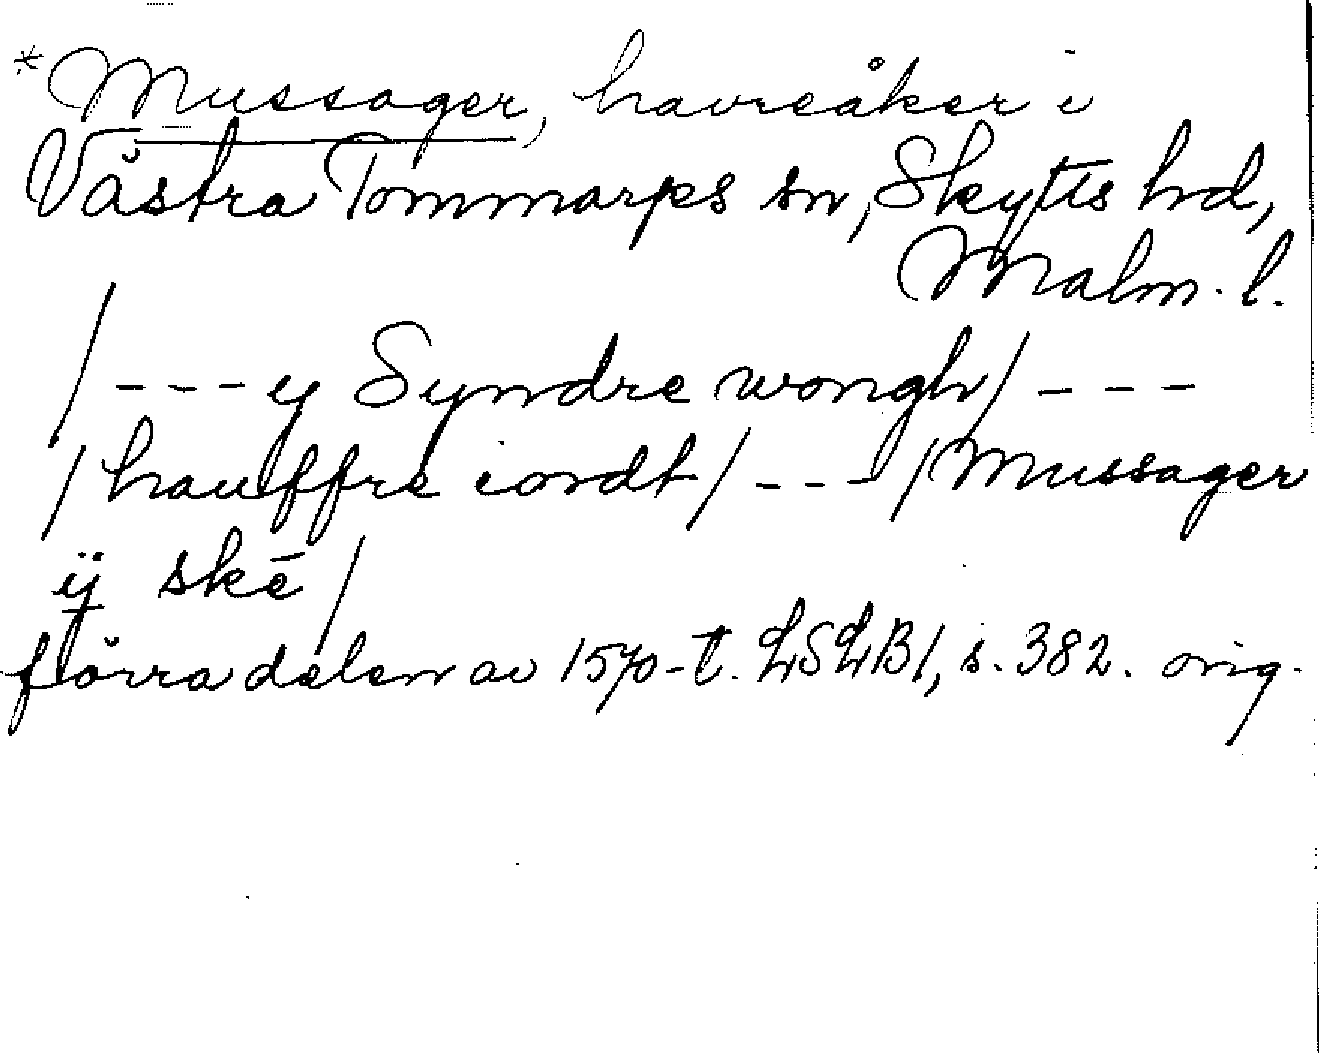 *Mussager, havreåker i
Västra Tommarps sn, Skytts hd,
Malm. l.
/---y Syndre wongh/---
/hauffre iordt/---/Mussager
ÿ skē/
förra delen av 1570-t. LSLB1, s. 382. orig.